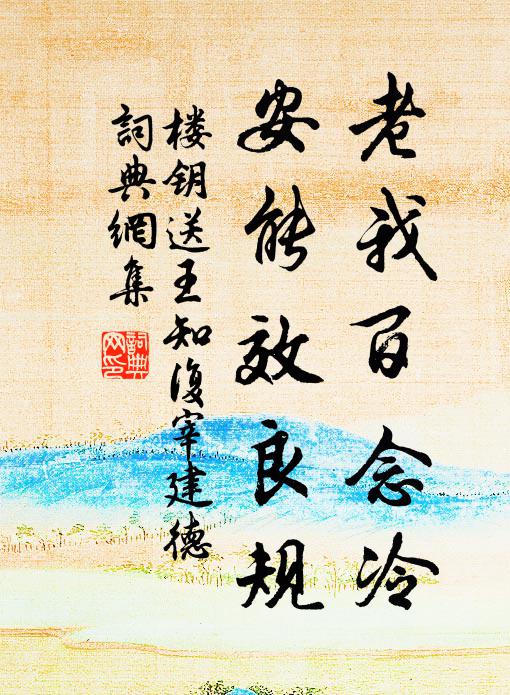 老我百念冷
安能效良规
楼钥送王知復宰建德
詞典網集
詞典網印